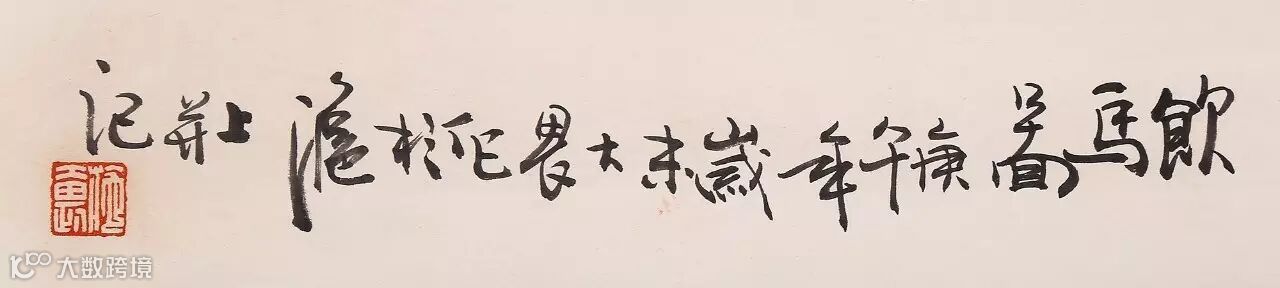 飲馬圖庚午年歲末大畏作於滬上并記
大数跨境